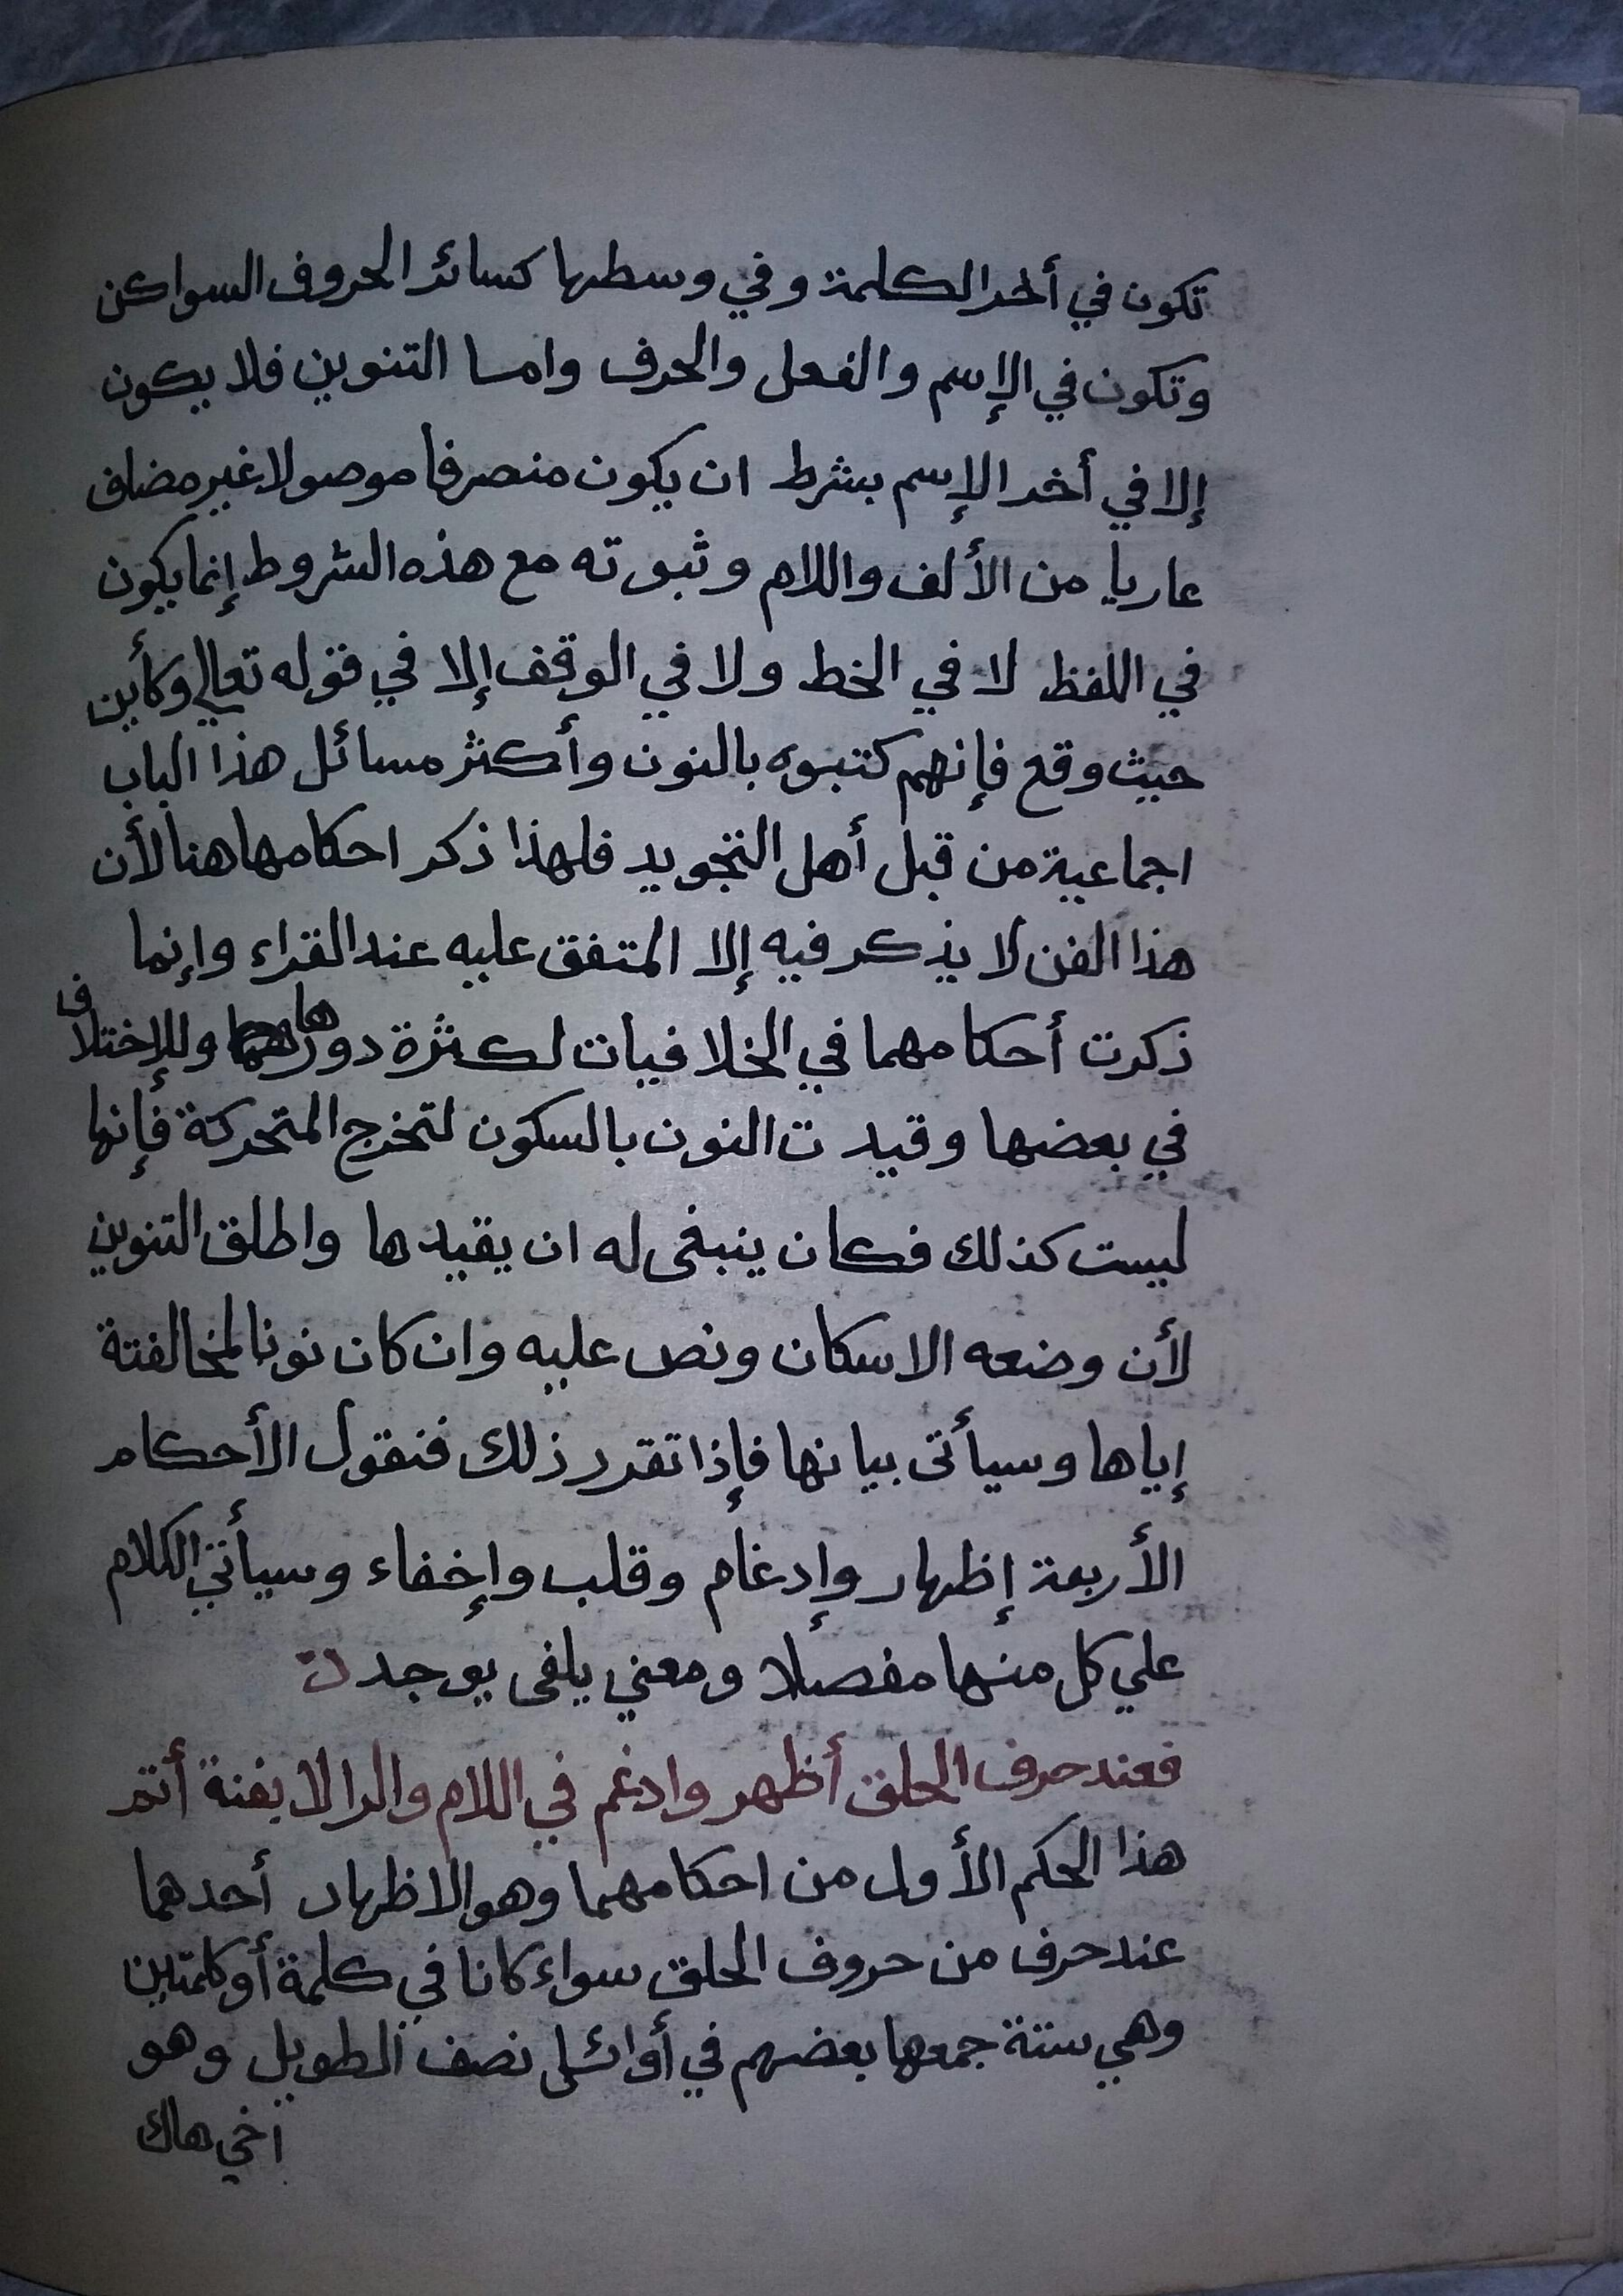 تكون في أخر الكلمة وفي وسطها كسائر الحروف السواكن
وتكون في الإسم والفعل والحرف واما التنوين فلا يكون
إلا في أخر الإسم بشرط ان يكون منصرفا موصولا غير مضاف
عاريا من الألف واللام وثبوته مع هذه الشروط إنما يكون
في اللفظ لا في الخط ولا في الوقف إلا في قوله تعالي وكأين
حيث وقع فإنهم كتبوه بالنون وأكثر مسائل هذا الباب
اجماعية من قبل أهل التجويد فلهذا ذكر احكامها هنا لأن
هذا الفن لا يذكر فيه إلا المتفق عليه عند القراء وإنما
ذكرت أحكامهما في الخلافيات لكثرة دورها وللإختلاف
في بعضها وقيدت النون بالسكون لتخرج المتحركة فإنها
ليست كذلك فكان ينبغى له ان يقيدها واطلق التنوين
لأن وضعه الاسكان ونص عليه وان كان نونا لمخالفتة
إياها وسيأتى بيانها فإذا تقرر ذلك فنقول الأحكام
الأربعة إظهار وإدغام وقلب وإخفاء وسيأتي الكلام
علي كل منها مفصلا ومعني يلفى يوجد ت
فعند حرف الحلق أظهر وادغم في اللام والرا لا بغنة أتم
هذا الحكم الأول من احكامهما وهو الاظهار أحدهما
عند حرف من حروف الحلق سواء كانا في كلمة أو كلمتين
وهي ستة جمعها بعضهم في أوائل نصف الطويل وهو
اخي هاك